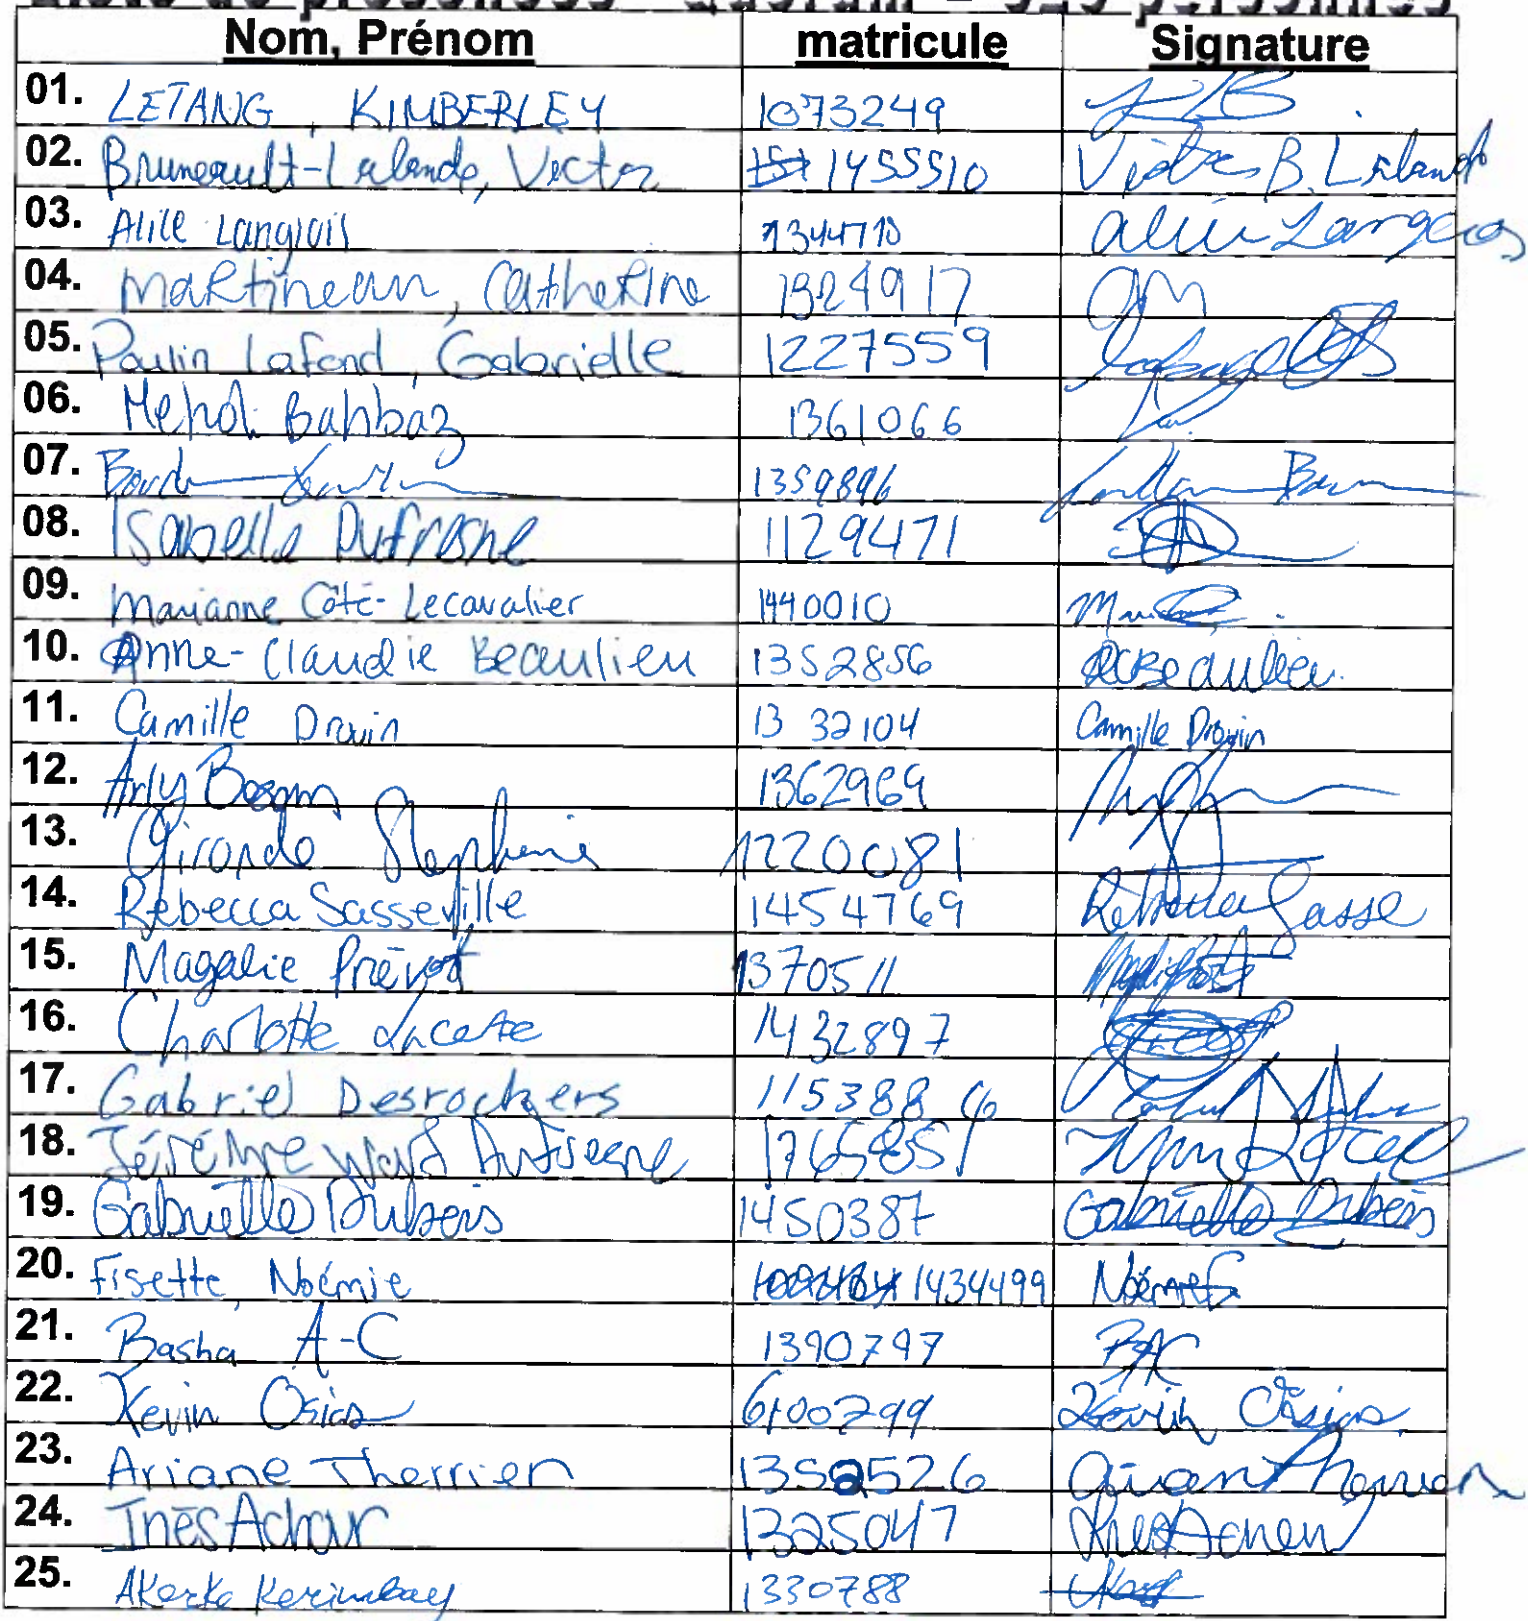 Liste de présences - Quorum - 525 personnes
Nom, Prénom matricule Signature
01. LETANG, KIMBERLEY 1073249
02. Bruneault-Lalande, Victor 1455510 Victor B. Laland
03. Alice Langlois 1344710 Alice Langlois
04. Martineau, Catherine 1324917 CM
05. Poulin Lafond, Gabrielle 1227559
06. Mehdi Bahbaz 1361066
07. 1359896
08. Isabelle Dufresne 1129471
09. Marianne Côté-Lecavalier 1440010
10. Anne-Claudie Beaulieu 1352856 ACBeaulieu
11. Camille Drouin 1332104 Camille Drouin
12. Arly Bosom 1362969
13. Gironde Stephanie 1220081
14. Rebecca Sasseville 1454769 Rebecca Sasse
15. Magalie Prévost 1370511
16. Charlotte Lacoste 1432897
17. Gabriel Desrochers 115388
18. Jérémie Ward Dufresne 1765851
19. Gabrielle Dubois 1450387 Gabrielle Dubois
20. Fisette, Noémie 1434499 Noémie F
21. Basha A-C 1390797 BAC
22. Kevin Osias 6100299 Kevin Osias
23. Ariane Therrien 1352526 Ariane Therrien
24. Inès Achour 1325047 Inès Achour
25. Akerke Kerimbay 1330788